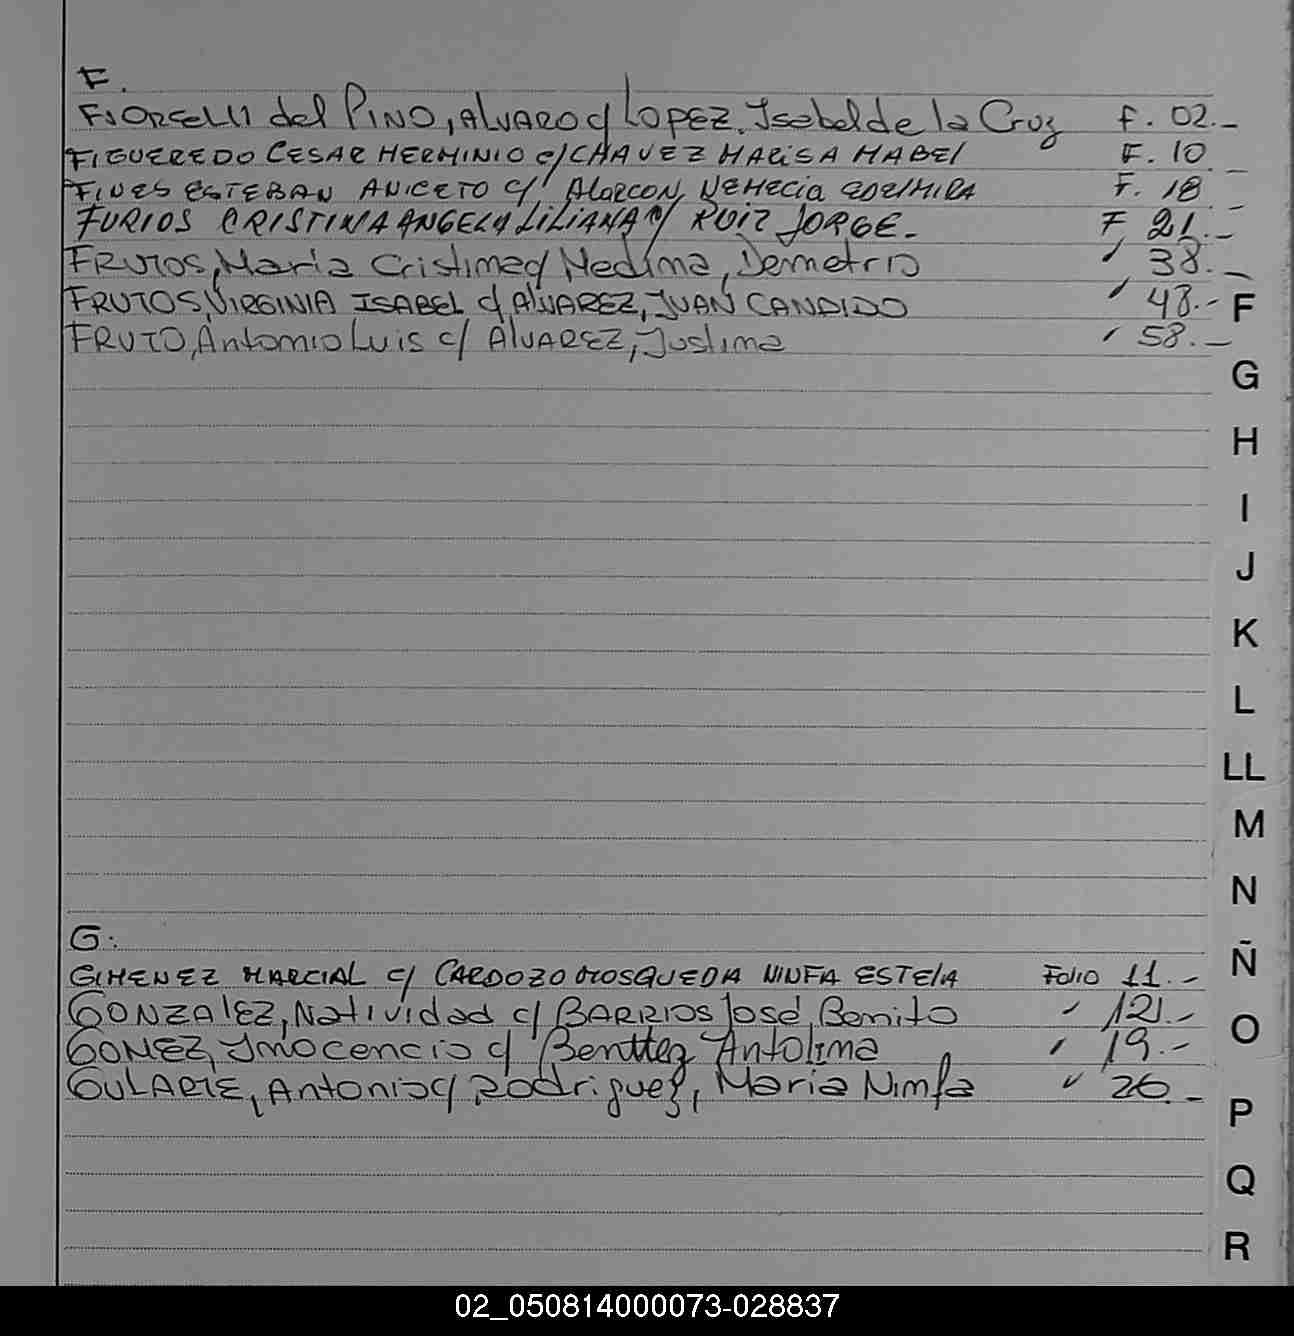 F.
FIORELLI del PINO, ALVARO c/ LOPEZ, Isabel de la Cruz F. 02.-
FIGUEREDO CESAR HERMINIO c/ CHAVEZ MARISA MABEL F. 10 -
FINES ESTEBAN ANICETO c/ ALARCON, NEMECIA EDELMIRA F. 18 -
FURIOS CRISTINA ANGELA LILIANA c/ RUIZ JORGE.- F 21.-
FRUTOS, María Cristina c/ Medina, Demetrio " 38.-
FRUTOS, VIRGINIA ISABEL c/ ALVAREZ, JUAN CANDIDO " 48.-
FRUTO, Antonio Luis c/ ALVAREZ, Justina " 58.-
F
G
H
I
J
K
L
LL
M
N
Ñ
O
P
Q
R
G.
GIMENEZ MARCIAL c/ CARDOZO MOSQUEDA NINFA ESTELA Folio 11.-
GONZALEZ, Natividad c/ BARRIOS José Benito " 121.-
GOMEZ, Inocencio c/ Benttez Antolina " 19.-
GULARTE, Antonio c/ Rodriguez, María Ninfa " 26.-
02_050814000073-028837